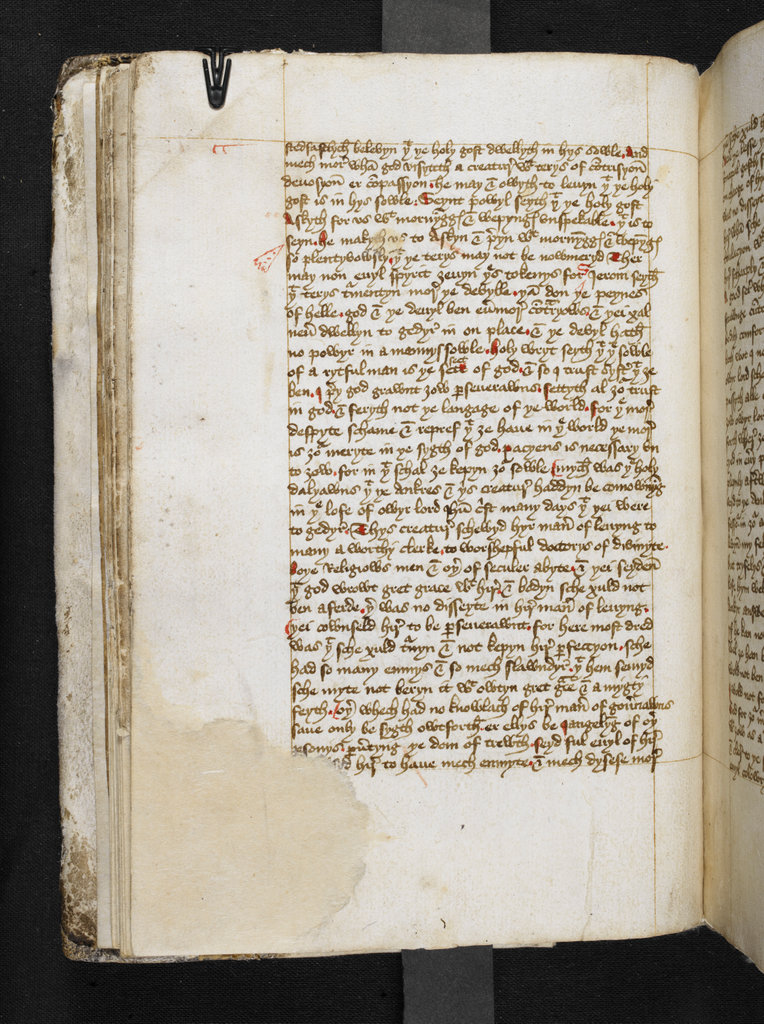 stedfastlych belevyn þat þe holy gost dwellyth in hys sowle. And
mech mor whan god visyteth a creatur wyth terys of contrisyon
devosyon er compassyon. he may & owyth to levyn þat þe holy
gost is in hys sowle. Seynt powyl seyth þat þe holy gost
Askyth for vs wyth mornynggys & wepyngys vnspekable. þat is to
seyn. he makyth vs to Askyn & preyn wyth mornynggys & wepyngys
so plentyvowsly. þat þe terys may not be nowmeryd. Ther
may non euyl spyrit ȝeuyn þes tokenys for Jerom seyth
þat terys turmentyn mor þe devylle. þan don þe peynes
of helle. god & þe devyl ben euermor contraryows. & þei xal
neuer dwellyn to gedyr in on place. & þe devyl hath
no powyr in a mannys sowle. Holy wryt seyth þat þe sowle
of a rytful man is þe sete of god. & so I trust syster þat ȝe
ben. I prey god grawnt ȝow perseuerawns. Settyth al ȝowr trust
in god. & feryth not þe langage of þe world. for þe mor
despyte schame & repref þat ȝe haue in þe world þe mor
is ȝowr meryte in þe sygth of god. Pacyens is necessary vn
to ȝow. for in þat schal ȝe kepyn ȝowr sowle. Mych was þe holy
dalyawns þat þe ankres & þis creatur haddyn be comownyng
in þe lofe of owyr lord Jhesu crist many days þat þei were
to gedyr. Thys creatur schewyd hyr maner of levyng to
many a worthy clerke. to worshepful doctorys of divinyte.
boþe Religiows men & oþer of seculer abyte. & þei seyden
þat god wrowt gret grace wyth hir & bodyn sche xuld not
ben aferde. þer was no disseyte in hir maner of levyng.
þei cownseld hir to be perseuerawnt. for here most dred
was þat sche xuld turnyn & not kepyn hir perfeccyon. sche
had so many enmys & so mech slawndyr. þat hem semyd
sche myte not beryn it wyth owtyn gret grace & a mygty
feyth. Oþer whech had no knowlach of hir maner of gouernawns
saue only be sygth owtforth er ellys be jangelyng of oþer
personys peruertyng þe dom of trewth. seyd ful euyl of hir
hir to haue mech enmyte & mech dysese mor